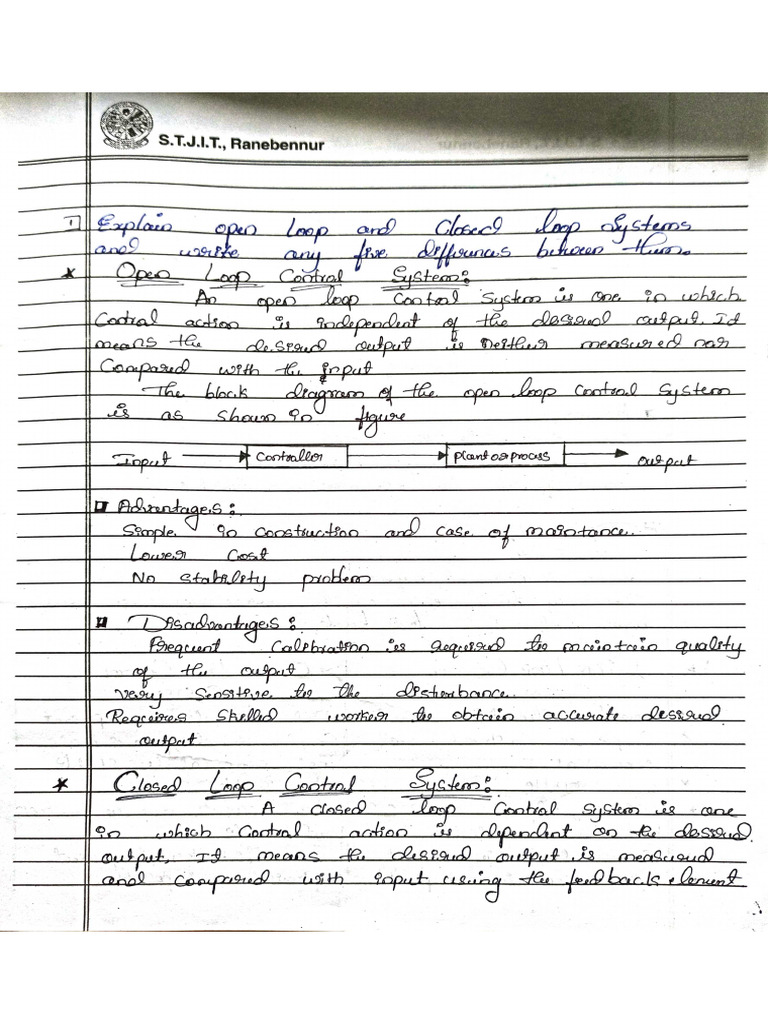 S.T.J.I.T., Ranebennur
1 Explain open Loop and Closed loop Systems
and write any five differences between them.
* Open Loop Control System:
An open loop Control System is one in which
Control action is independent of the desired output. It
means the desired output is neither measured nor
Compared with the input
The block diagram of the open loop Control System
is as shown in figure
Input Controller plant or process output
Advantages:
Simple in construction and ease of maintance.
Lower Cost
No stability problem
Disadvantages:
Frequent Calibration is required to maintain quality
of the output
very Sensitive to the disturbance.
Requires Skelled worker to obtain accurate desired
output
* Closed Loop Control System:
A closed loop Control System is one
in which Control action is dependent on the desired
output. It means the desired output is measured
and compared with input using the feedback element